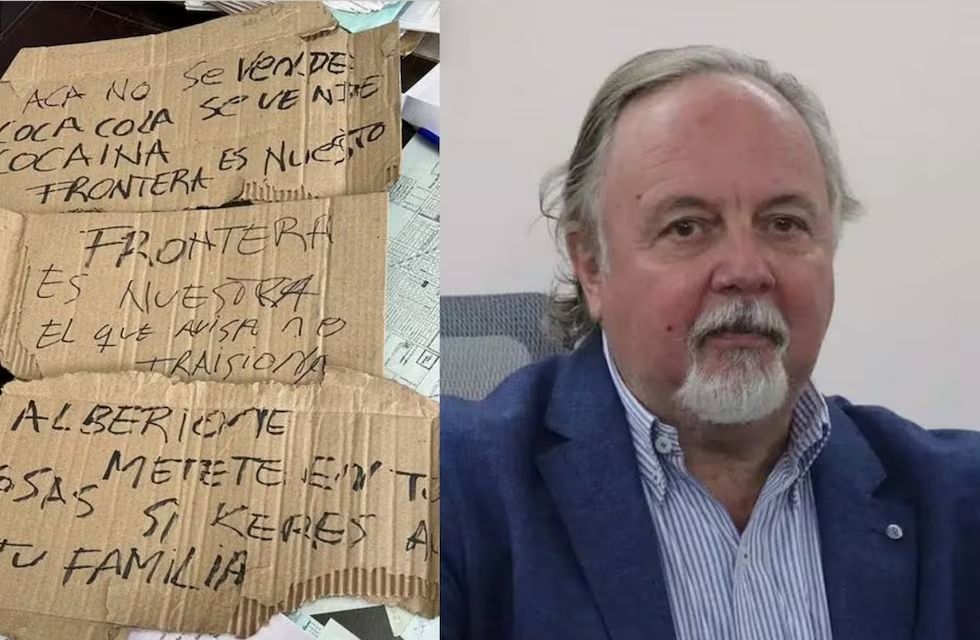 ACA NO SE VENDE
COCA COLA SE VENDE
COCAINA ES NUESTO
FRONTERA
FRONTERA
ES NUESTRA
EL QUE AVISA NO
TRAISIONA
METETE EN
SI KERES
TU FAMILIA